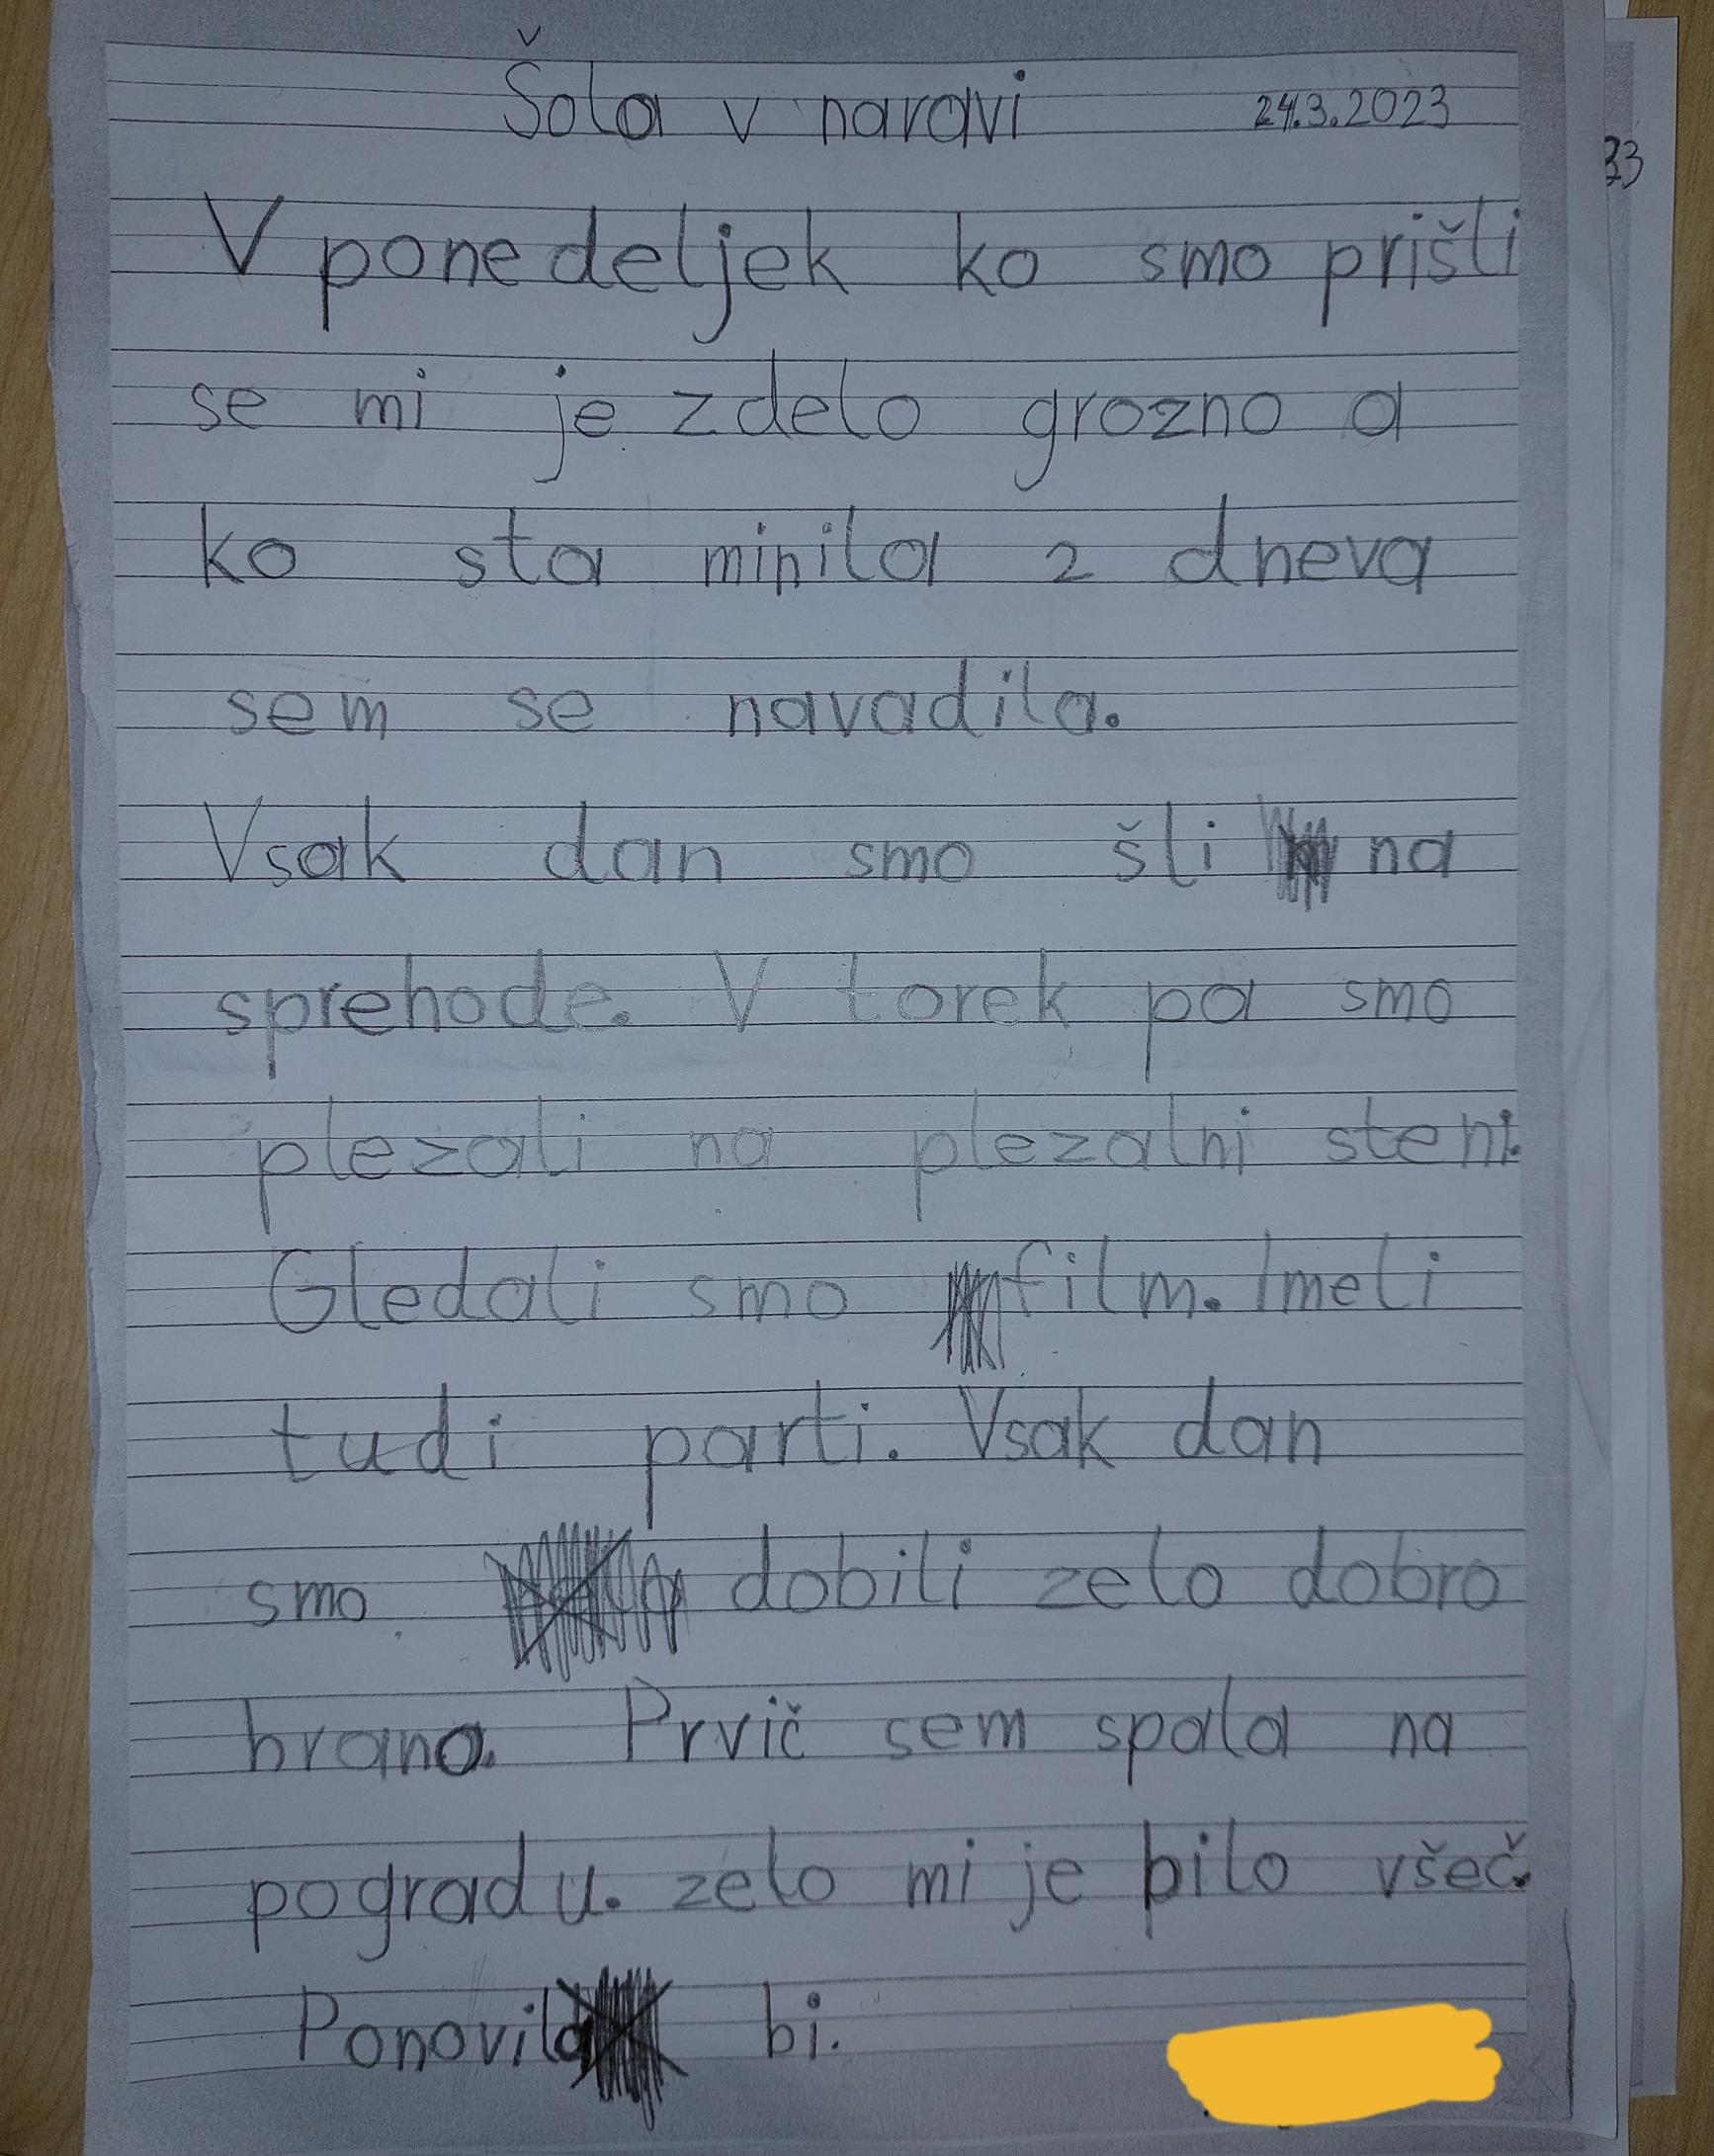 Šola v naravi 24.3.2023
33
V ponedeljek ko smo prišli
se mi je zdelo grozno a
ko sta minila 2 dneva
sem se navadila.
Vsak dan smo šli na
sprehode. V torek pa smo
plezali na plezalni steni.
Gledali smo film. Imeli
tudi parti. Vsak dan
smo dobili zelo dobro
hrano. Prvič sem spala na
pogradu. zelo mi je bilo všeč.
Ponovila bi.